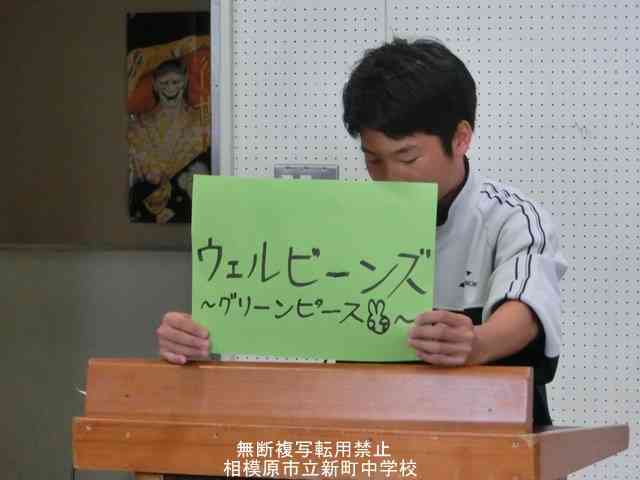 ウェルビーンズ
～グリーンピース～
無断複写転用禁止
相模原市立新町中学校